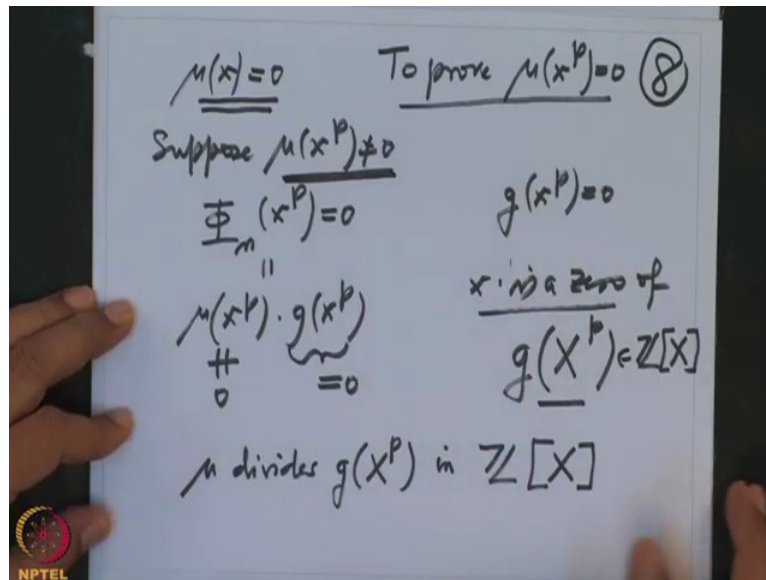 μ(x)=0    To prove μ(x^p)=0  ⑧
Suppose μ(x^p)≠0
Φ_n(x^p)=0    g(x^p)=0
||
μ(x^p)·g(x^p)    x is a zero of
≠    =0    g(X^p)∈ℤ[X]
0
μ divides g(X^p) in ℤ[X]
NPTEL